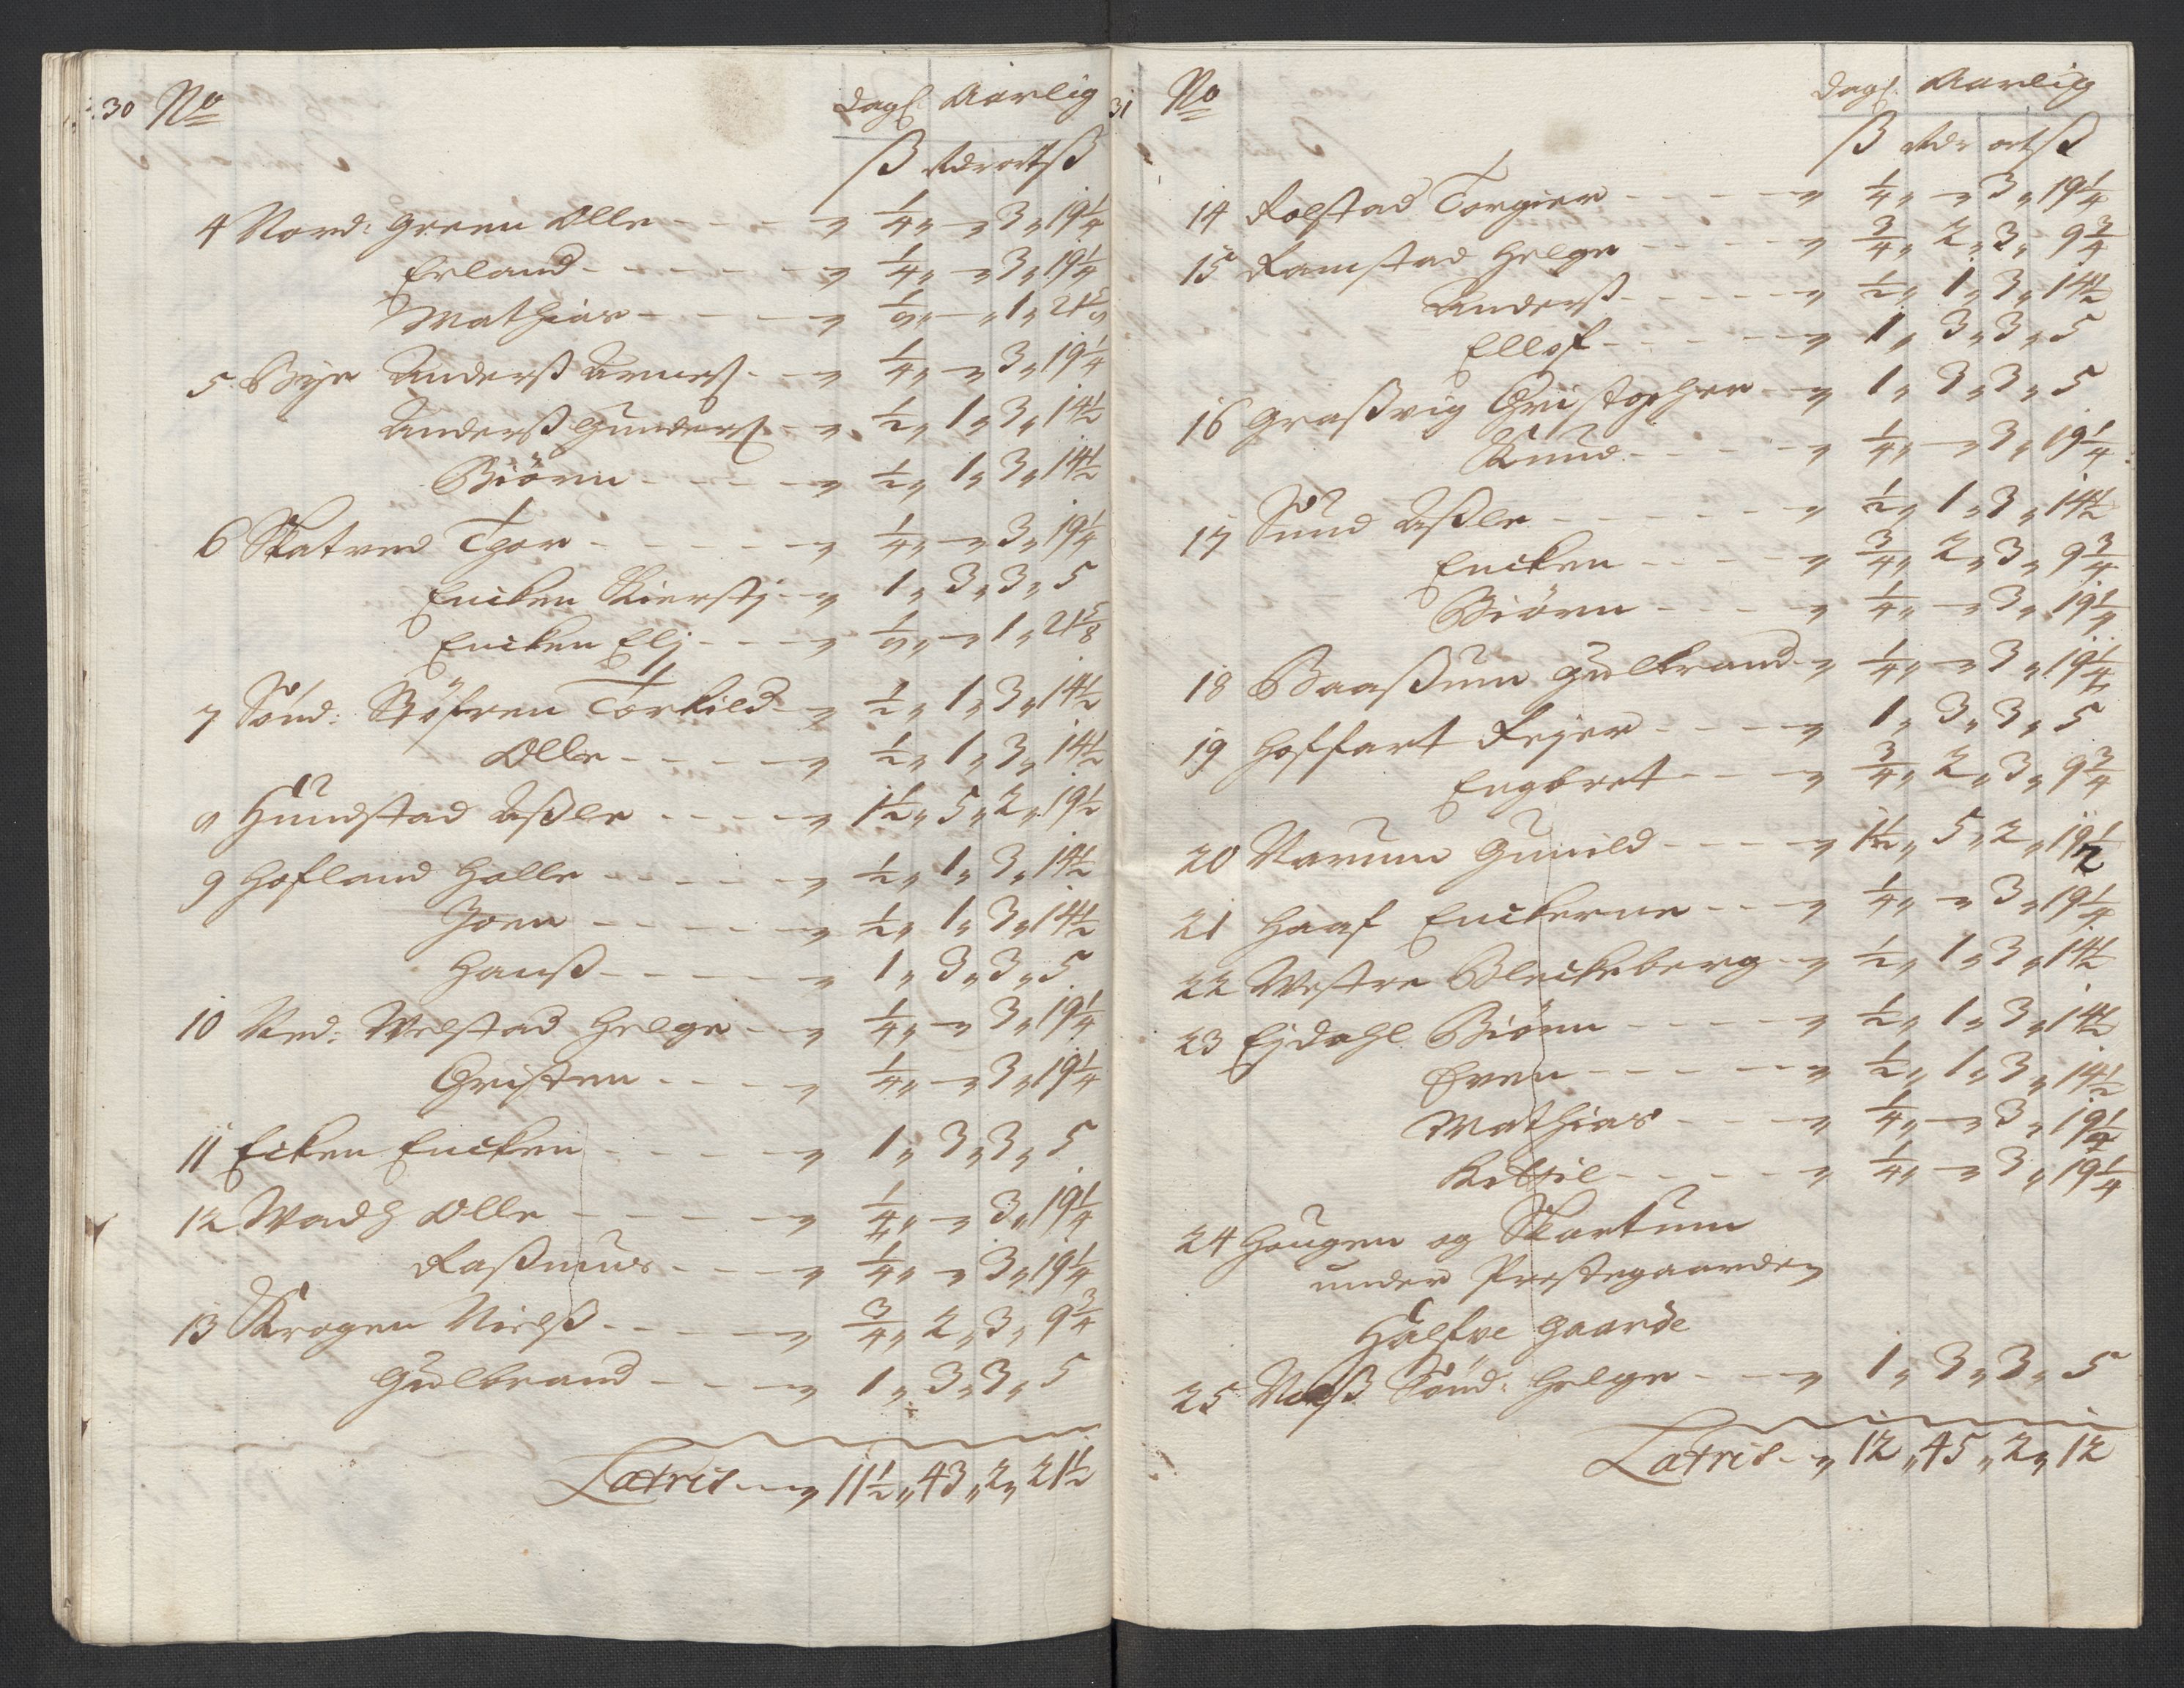 30 No dagl. Aarlig
ß Rdr ort ß
4 Nord: Green Olle - - - „ 1/4 „ - „ 3 „ 19 1/4
Erland - - - - - „ 1/4 „ - „ 3 „ 19 1/4
Mathias - - - - „ 1/8 „ - „ 1 „ 21 5/8
5 Bye Anderß Arness. - - „ 1/4 „ - „ 3 „ 19 1/4
Anderß Gunders. - „ 1/2 „ 1 „ 3 „ 14 1/2
Biörn - - - - „ 1/2 „ 1 „ 3 „ 14 1/2
6 Skatved Thor - - - - - „ 1/4 „ - „ 3 „ 19 1/4
Encken Kierstj - „ 1 „ 3 „ 3 „ 5
Encken Elj - - - „ 1/8 „ - „ 1 „ 21 5/8
7 Sönd: Röfren Torkild - „ 1/2 „ 1 „ 3 „ 14 1/2
Olle - - - - „ 1/2 „ 1 „ 3 „ 14 1/2
8 Hundstad Aßle - - - - „ 1 1/2 „ 5 „ 2 „ 19 1/2
9 Hofland Halle - - - - - „ 1/2 „ 1 „ 3 „ 14 1/2
Joen - - - - - „ 1/2 „ 1 „ 3 „ 14 1/2
Hanß - - - - - „ 1 „ 3 „ 3 „ 5
10 Ned: Welstad Helge - - „ 1/4 „ - „ 3 „ 19 1/4
Christen - - - - „ 1/4 „ - „ 3 „ 19 1/4
11 Ecken Encken - - - - - „ 1 „ 3 „ 3 „ 5
12 Wadh Olle - - - - - „ 1/4 „ - „ 3 „ 19 1/4
Raßmus - - - - „ 1/4 „ - „ 3 „ 19 1/4
13 Krogen Nielß - - - - - „ 3/4 „ 2 „ 3 „ 9 3/4
Gulbrand - - - „ 1 „ 3 „ 3 „ 5
Latris - - „ 11 1/2 „ 43 „ 2 „ 21 1/2
31 No dagl. Aarlig
ß Rdr ort ß
14 Rolstad Torgier - - - - „ 1/4 „ - „ 3 „ 19 1/4
15 Ramstad Helge - - - - „ 3/4 „ 2 „ 3 „ 9 3/4
Anderß - - - - - „ 1/2 „ 1 „ 3 „ 14 1/2
Ellef - - - - - „ 1 „ 3 „ 3 „ 5
16 Graßvig Christopher - „ 1 „ 3 „ 3 „ 5
Knud - - - - „ 1/4 „ - „ 3 „ 19 1/4
17 Sund Aßle - - - - - - „ 1/2 „ 1 „ 3 „ 14 1/2
Encken - - - - „ 3/4 „ 2 „ 3 „ 9 3/4
Biörn - - - - „ 1/4 „ - „ 3 „ 19 1/4
18 Baaßum Gulbrand - „ 1/4 „ - „ 3 „ 19 1/4
19 Hoffart Rejer - - - - „ 1 „ 3 „ 3 „ 5
Engbret - - - „ 3/4 „ 2 „ 3 „ 9 3/4
20 Narum Gunild - - - - „ 1 1/2 „ 5 „ 2 „ 19 1/2
21 Haaf Enckerne - - - „ 1/4 „ - „ 3 „ 19 1/4
22 Westre Bleckeberg - „ 1/2 „ 1 „ 3 „ 14 1/2
23 Ejdahl Biörn - - - - „ 1/2 „ 1 „ 3 „ 14 1/2
Even - - - - - „ 1/2 „ 1 „ 3 „ 14 1/2
Mathias - - - „ 1/4 „ - „ 3 „ 19 1/4
Kittil - - - - „ 1/4 „ - „ 3 „ 19 1/4
24 Hougen og Skartum
under Prestegaarden
Halfve Gaarde
25 Næß Sönd: Helge - - - „ 1 „ 3 „ 3 „ 5
Latris - „ 12 „ 45 „ 2 „ 12